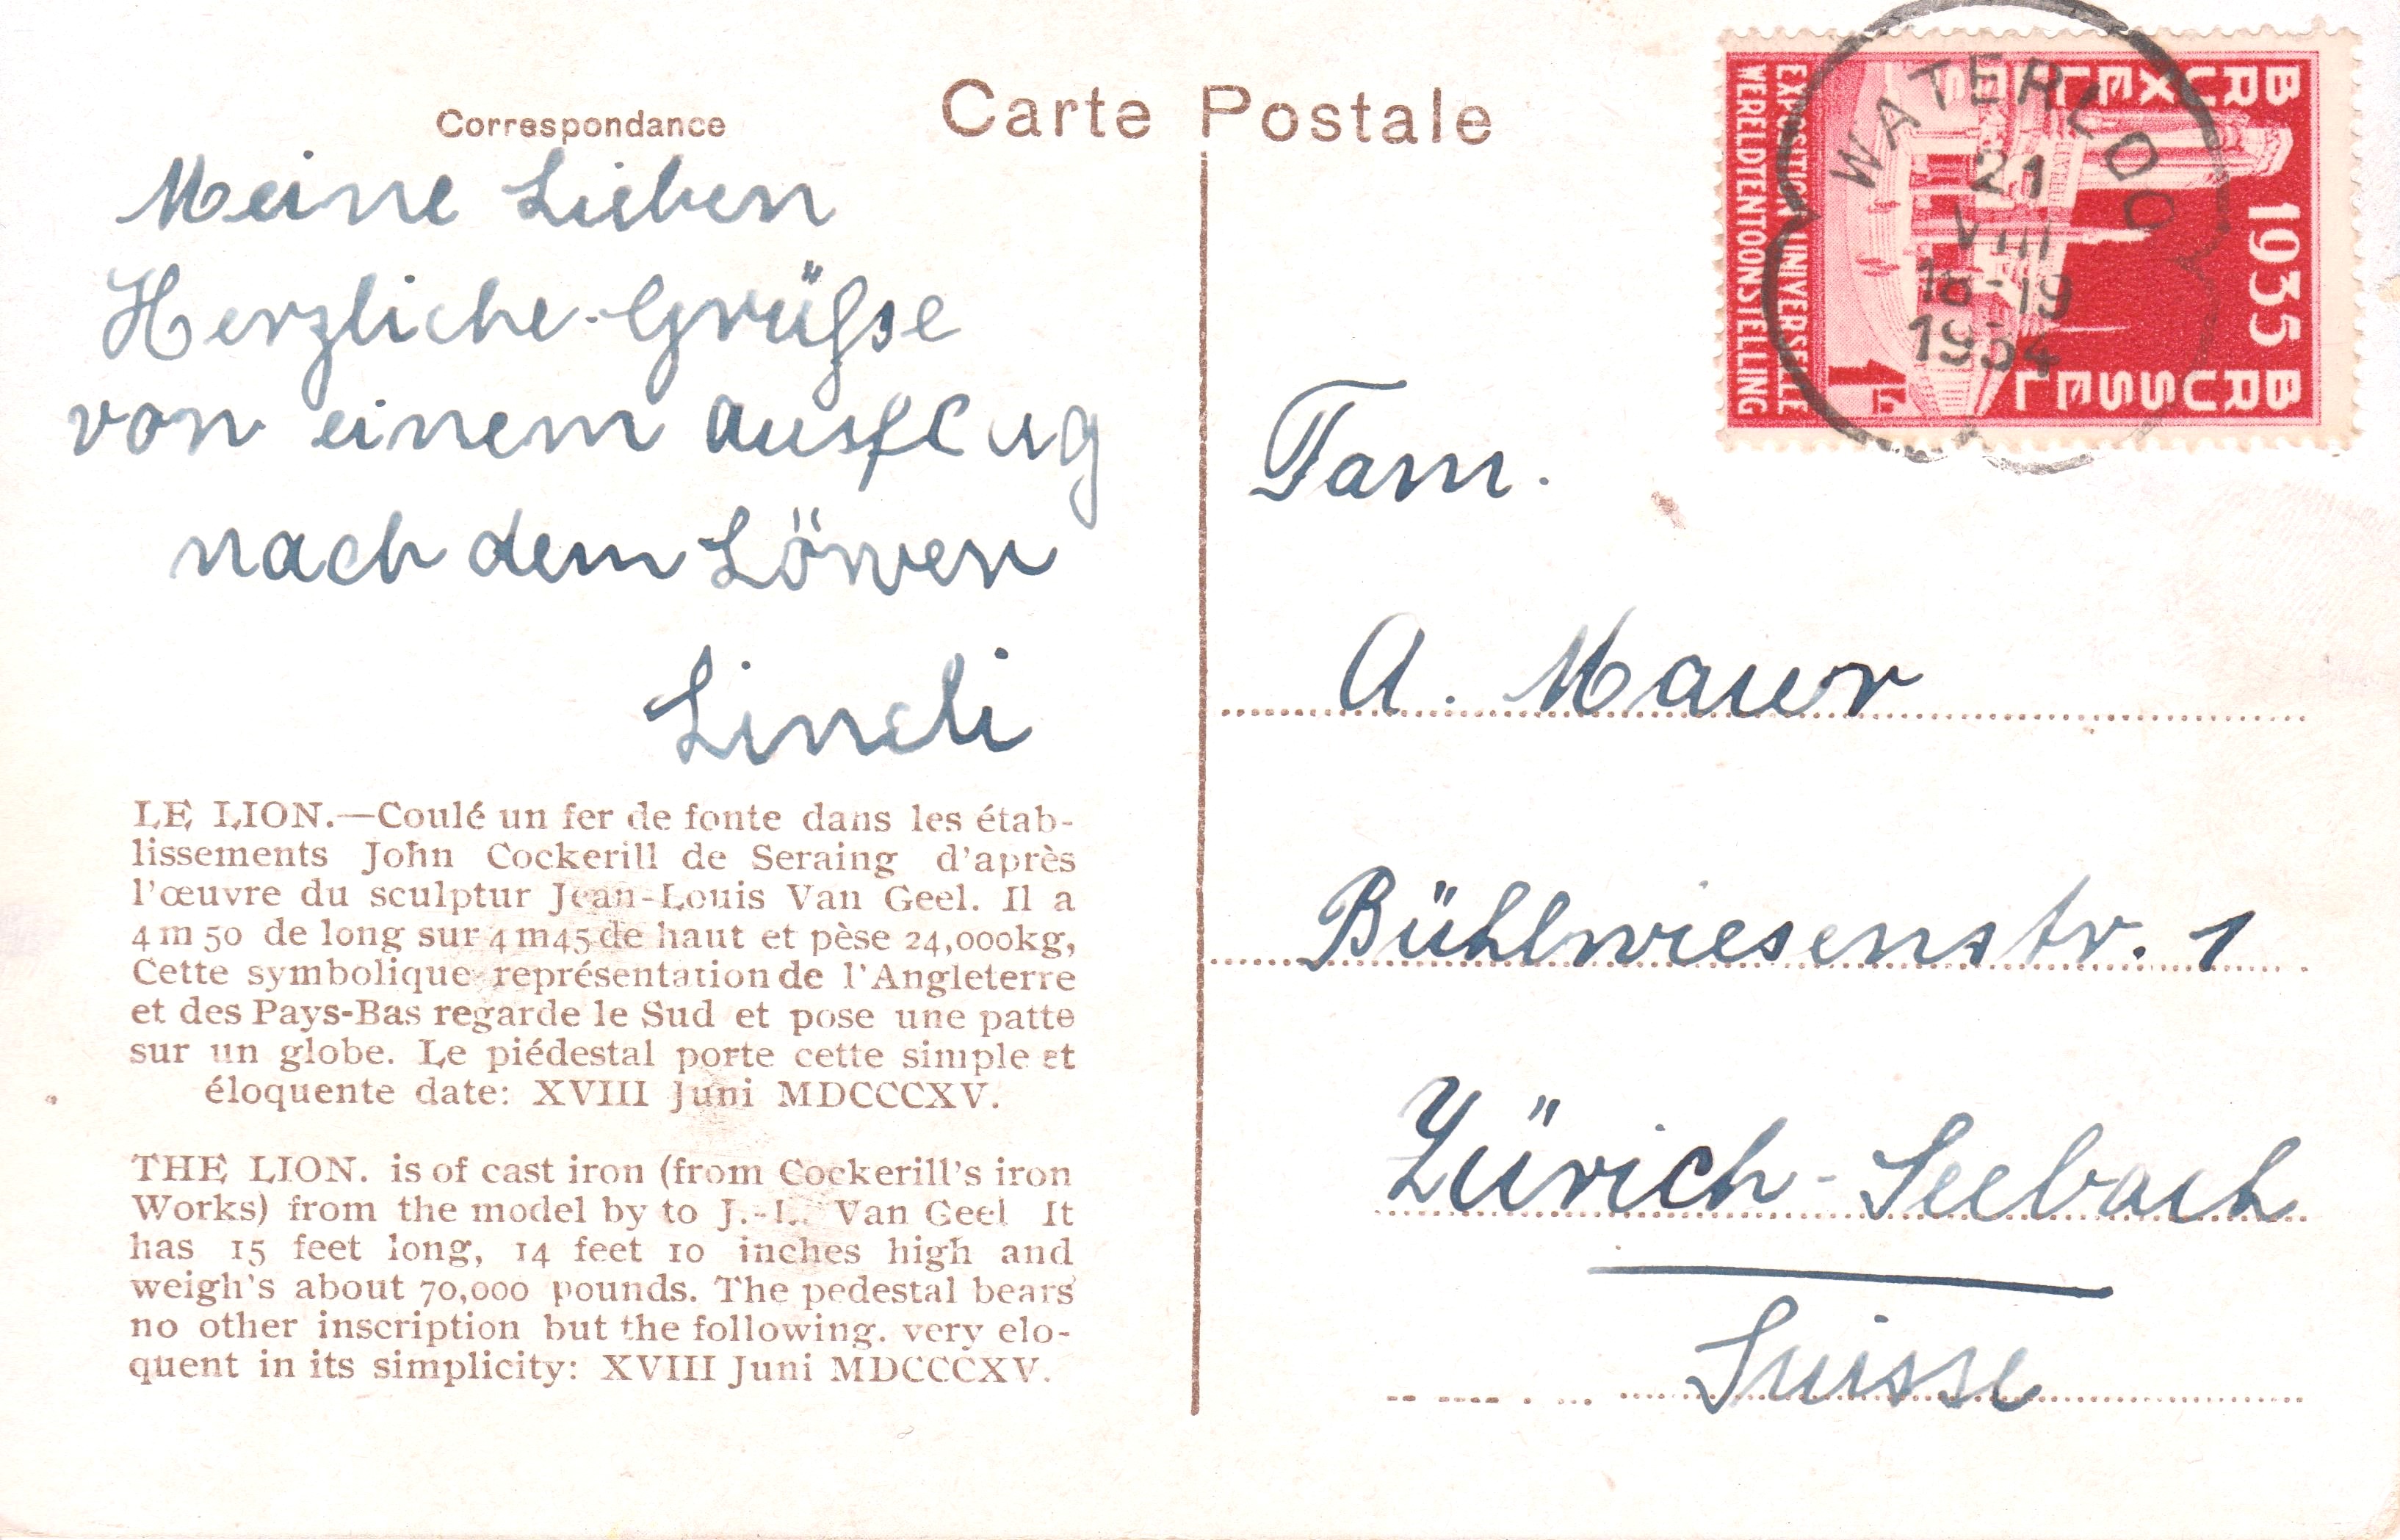 Carte Postale
Correspondance
Meine Lieben
Herzliche Grüsse
von einem Ausflug
nach dem Löwen
Lineli
LE LION.—Coulé un fer de fonte dans les étab-
lissements John Cockerill de Seraing d'après
l'œuvre du sculptur Jean-Louis Van Geel. Il a
4 m 50 de long sur 4 m 45 de haut et pèse 24,000kg,
Cette symbolique représentation de l'Angleterre
et des Pays-Bas regarde le Sud et pose une patte
sur un globe. Le piédestal porte cette simple et
éloquente date: XVIII Juni MDCCCXV.
THE LION. is of cast iron (from Cockerill's iron
Works) from the model by to J.-L. Van Geel It
has 15 feet long, 14 feet 10 inches high and
weigh's about 70,000 pounds. The pedestal bears
no other inscription but the following. very elo-
quent in its simplicity: XVIII Juni MDCCCXV.
BRUXELLES 1935 BRUSSEL
EXPOSITION UNIVERSELLE
WERELDTENTOONSTELLING
1 F
WATERLOO
21
VIII
18-19
1934
Fam.
A. Maurer
Bühlwiesenstr. 1
Zürich-Seebach
Suisse